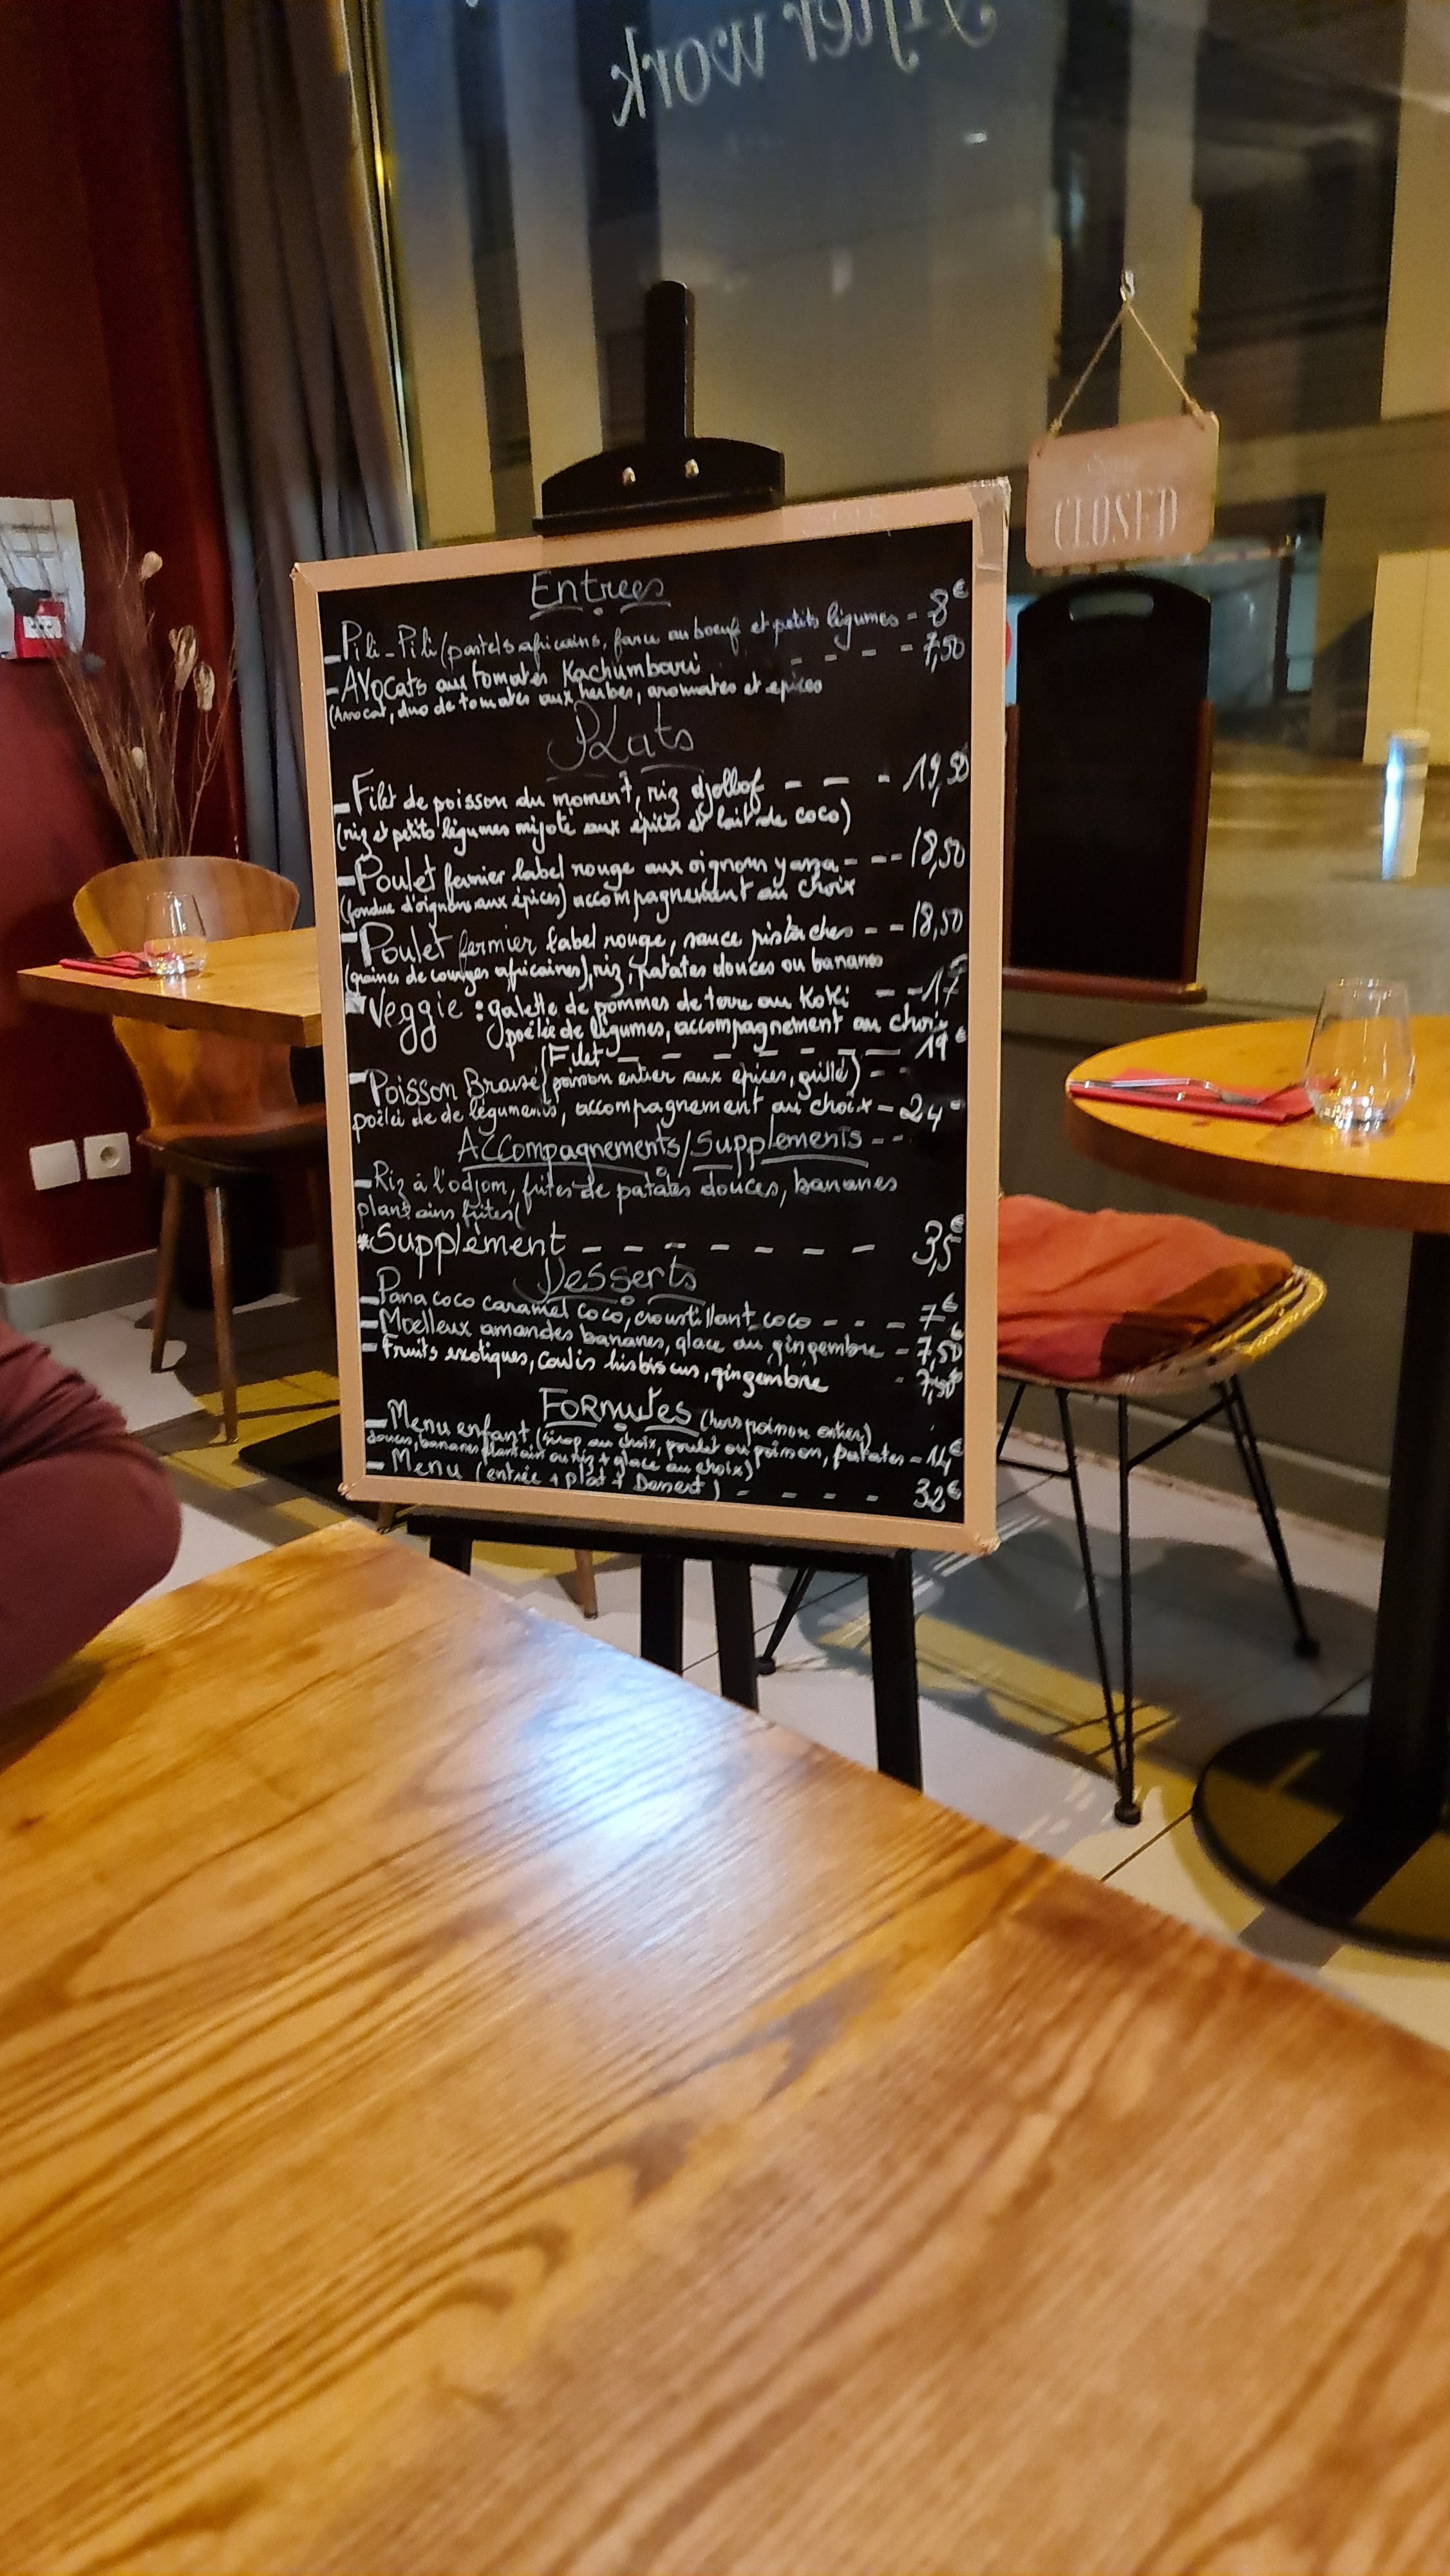 After work
CLOSED
Entrees
- Pili-Pili (pastels africains, farce au boeuf et petits légumes - 8€
- Avocats aux tomates Kachumbari - - - - 7,50
(Avocat, duo de tomates aux herbes, aromates et epices
Plats
- Filet de poisson du moment, riz djollof - - - 19,50
(riz et petits légumes mijoté aux épices et lait de coco)
- Poulet fermier label rouge aux oignons yassa - - - 18,50
(fondue d'oignons aux épices) accompagnement au choix
- Poulet fermier label rouge, sauce pistaches - - 18,50
(graines de courges africaines), riz, patates douces ou bananes
* Veggie : galette de pommes de terre au Koki - - 17€
poêlée de légumes, accompagnement au choix
(Filet - - - - - - - 19€
- Poisson Braisé (poisson entier aux epices, grillé) - -
poêlée de légumes, accompagnement au choix - 24
Accompagnements/Supplements - -
- Riz à l'odjom, frites de patates douces, bananes
plantains frites(
* Supplement - - - - - - - 3,5€
Desserts
- Pana coco caramel coco, croustillant coco - - - 7€
- Moelleux amandes bananes, glace au gingembre - 7,50€
- Fruits exotiques, coulis hisbiscus, gingembre - 7,50€
FORMULES (hors poisson entier)
- Menu enfant (sirop au choix, poulet ou poisson, patates - 14€
douces, bananes plantain ou riz + glace au choix)
- Menu (entrée + plat + Dessert) - - - - 32€